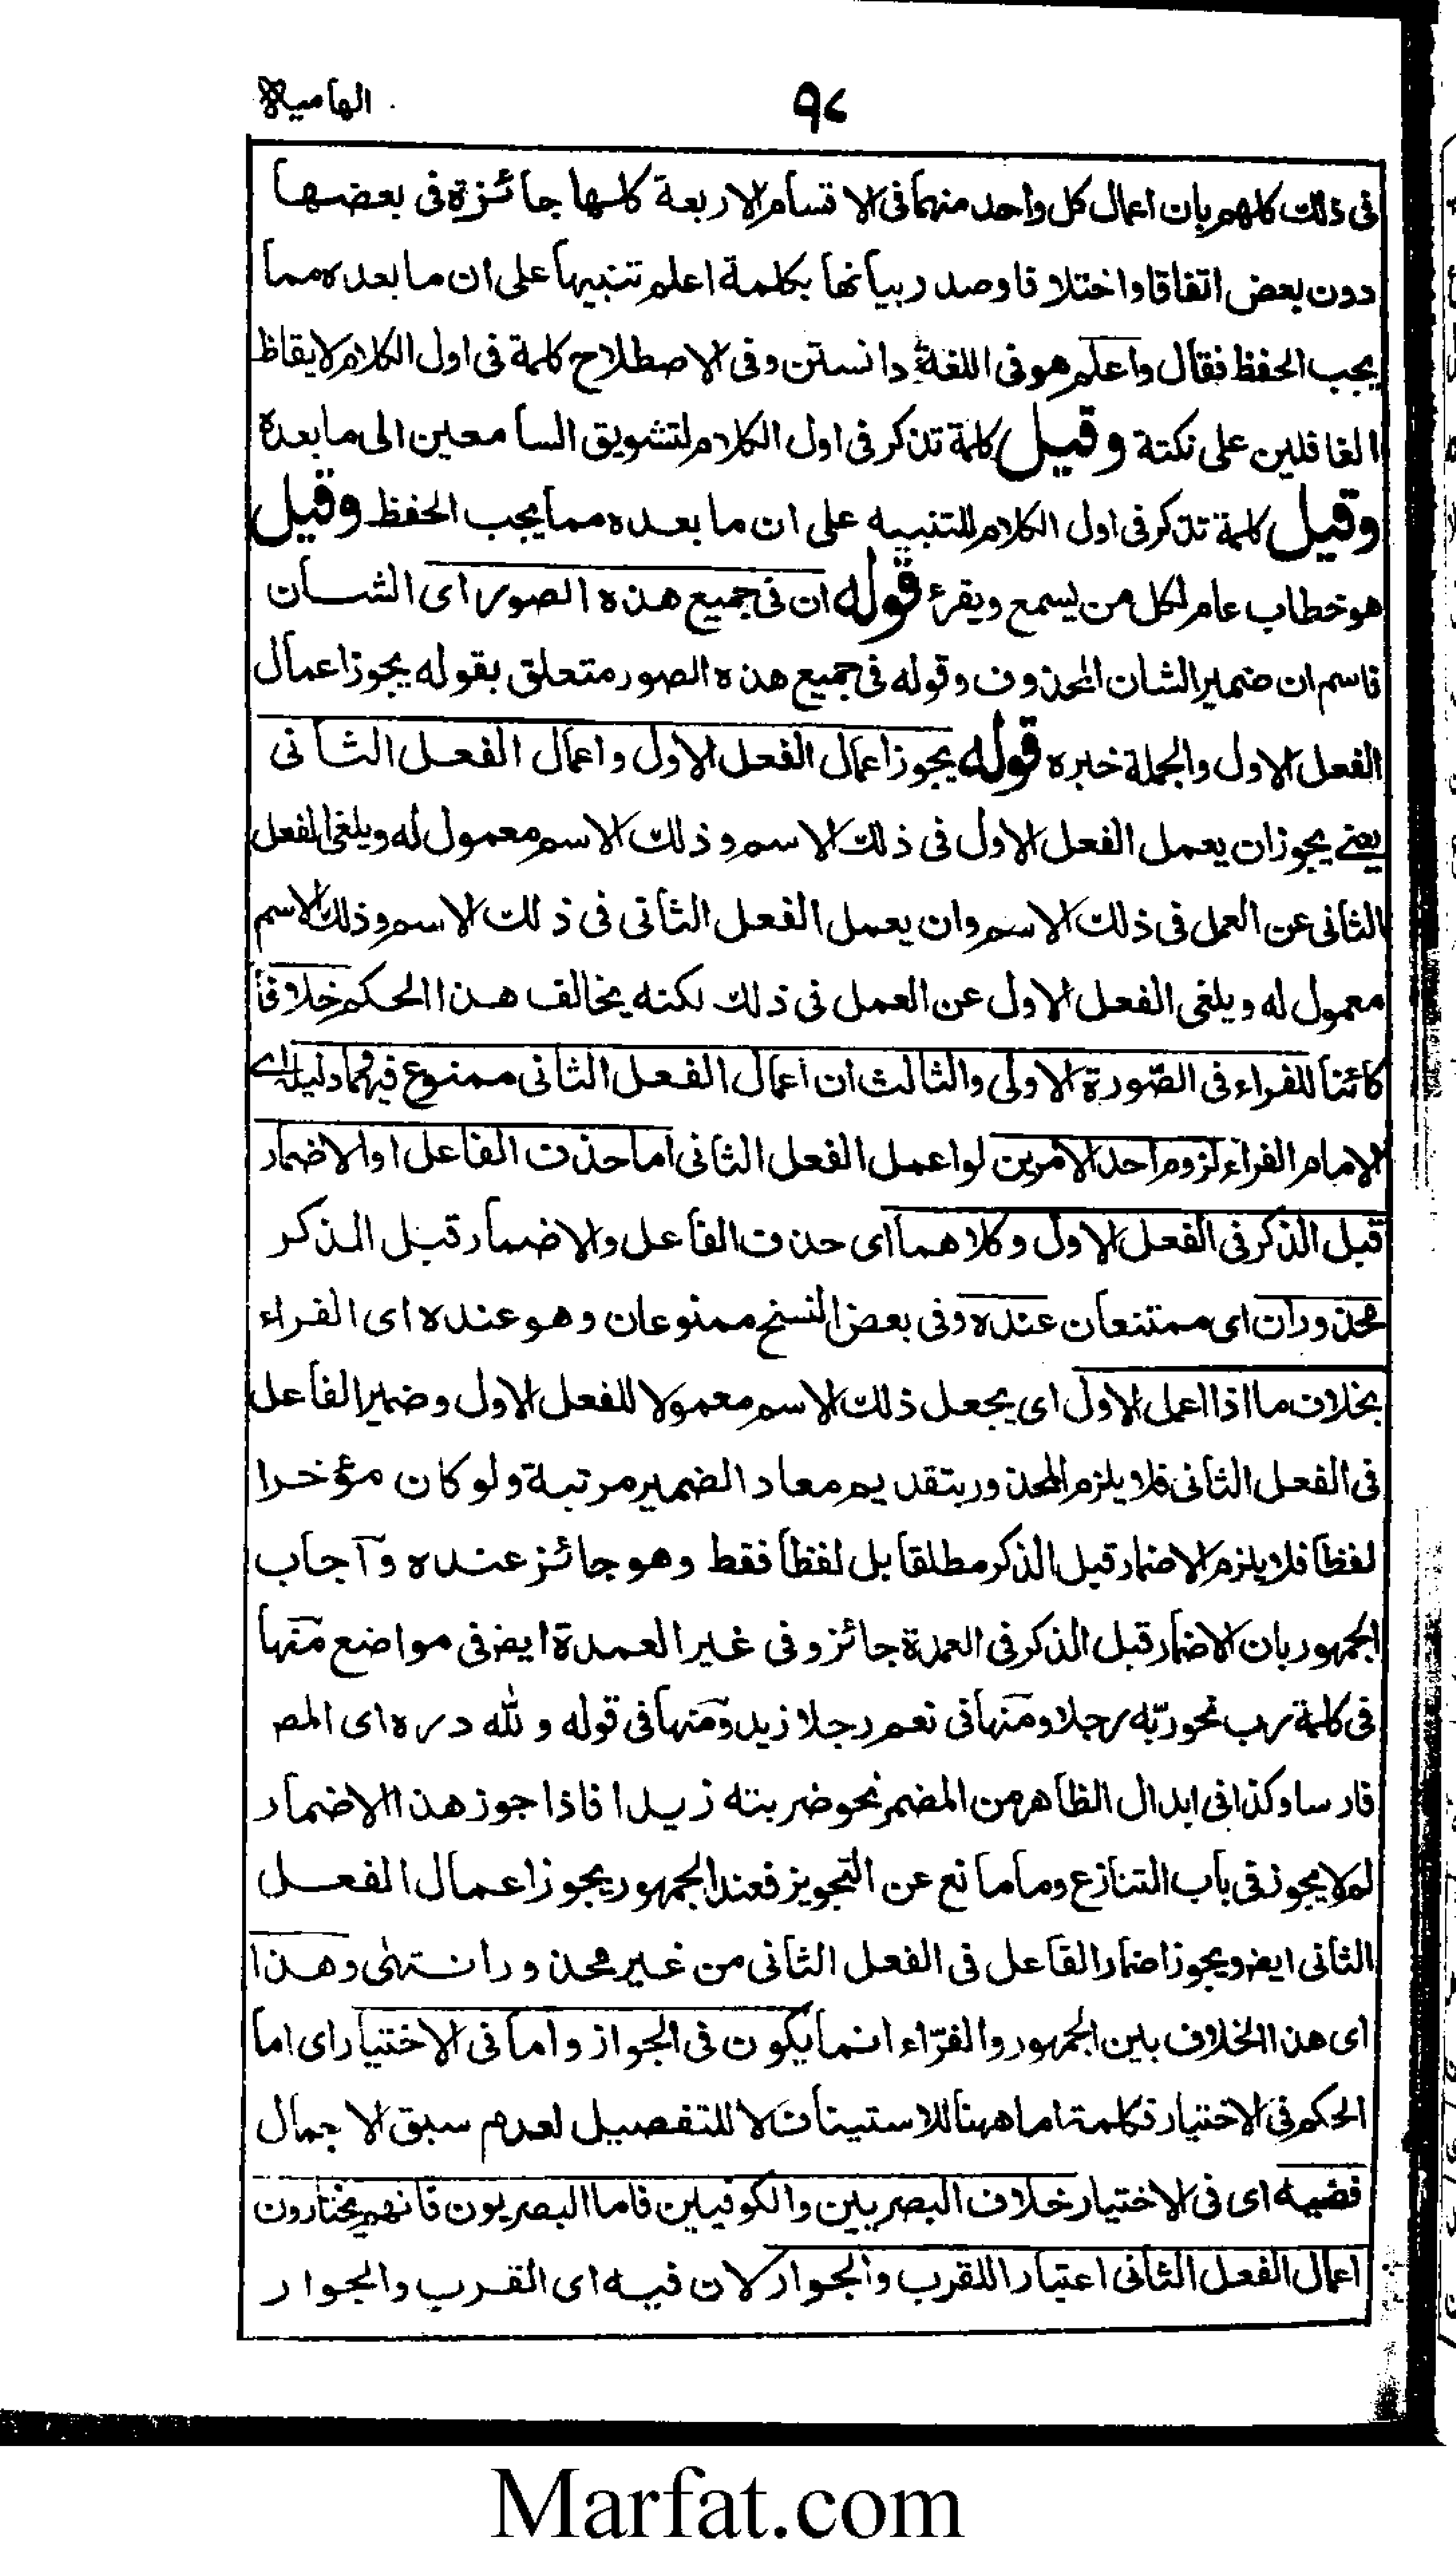 ٩٧
الهامية
فى ذلك كلهم بان اعمال كل واحد منهما فى الاقسام الاربعة كلها جائزة فى بعضها
دون بعض اتفاقا واختلافا وصدر بيانها بكلمة اعلم تنبيها على ان ما بعده مما
يجب الحفظ فقال واعلم هو فى اللغة دانستن وفى الاصطلاح كلمة فى اول الكلام لايقاظ
الغافلين على نكتة وقيل كلمة تذكر فى اول الكلام لتشويق السامعين الى ما بعده
وقيل كلمة تذكر فى اول الكلام للتنبيه على ان ما بعده مما يجب الحفظ وقيل
هو خطاب عام لكل من يسمع ويقرء قوله ان فى جميع هذه الصور اى الشان
فاسم ان ضمير الشان المحذوف وقوله فى جميع هذه الصور متعلق بقوله يجوز اعمال
الفعل الاول والجملة خبره قوله يجوز اعمال الفعل الاول واعمال الفعل الثانى
يعنے يجوز ان يعمل الفعل الاول فى ذلك الاسم وذلك الاسم معمول له ويلغى الفعل
الثانى عن العمل فى ذلك الاسم وان يعمل الفعل الثانى فى ذلك الاسم وذلك الاسم
معمول له ويلغى الفعل الاول عن العمل فى ذلك لكنه يخالف هذا الحكم خلافا
كائنا للفراء فى الصّورة الاولى والثالث ان اعمال الفعل الثانى ممنوع فيهما ودليله اے
الامام الفراء لزوم احد الامرين لو اعمل الفعل الثانى اما حذف الفاعل او الاضمار
قبل الذكر فى الفعل الاول وكلاهما اى حذف الفاعل والاضمار قبل الذكر
محذوران اى ممتنعان عنده وفى بعض النسخ ممنوعان وهو عنده اى الفراء
بخلاف ما اذا اعمل الاول اى يجعل ذلك الاسم معمولا للفعل الاول وضمير الفاعل
فى الفعل الثانى فلا يلزم المحذور بتقديم معاد الضمير مرتبة ولو كان مؤخرا
لفظا فلا يلزم الاضمار قبل الذكر مطلقا بل لفظا فقط وهو جائز عنده وآجاب
الجمهور بان الاضمار قبل الذكر فى العمدة جائز وفى غير العمدة ايض فى مواضع منها
فى كلمة رب نحو ربّه رجلا ومنها فى نعم رجلا زيد ومنها فى قوله ولله دره اى المص
فارسا وكذا فى ابدال الظاهر من المضمر نحو ضربته زيدا فاذا جوز هذا الاضمار
لم لا يجوز فى باب التنازع وما مانع عن التجويز فعند الجمهور يجوز اعمال الفعل
الثانى ايض ويجوز اضمار الفاعل فى الفعل الثانى من غير محذور انتهٰى وهذا
اى هذا الخلاف بين الجمهور والفرّاء انما يكون فى الجواز واما فى الاختيار اى اما
الحكم فى الاختيار فكلمة اما ههنا للاستيناف لا للتفصيل لعدم سبق الاجمال
ففيه اى فى الاختيار خلاف البصريين والكوفيين فاما البصريون فانهم يختارون
اعمال الفعل الثانى اعتبارا للقرب والجوار لان فيه اى القرب والجوار
Marfat.com